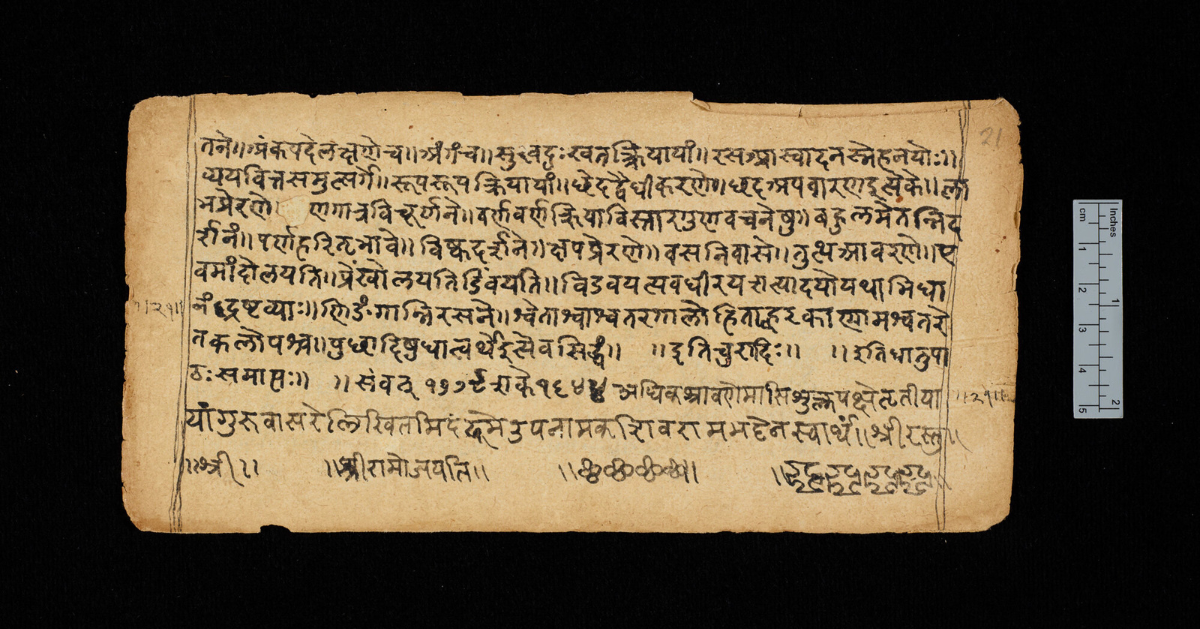 तने॥ अंकपदेलक्षणेच॥ अंगंच॥ सुखदुःखतत्क्रियायां॥ रसआस्वादनस्नेहनयोः॥
व्ययवित्तसमुत्सर्गे॥ रूपरूपक्रियायां॥ छेदद्वैधीकरणे॥ छदअपवारणइत्येके॥ ला
भप्रेरणे॥ व्रणगात्रविचूर्णने॥ वर्णवर्णक्रियाविस्तारगुणवचनेषु॥ बहुलमेतन्निद
र्शनं॥ पर्णहरितभावे॥ विष्कदर्शने॥ क्षपप्रेरणे॥ वसनिवासे॥ तुत्थआवरणे॥ ए
वमांदोलयति॥ प्रेंखोलयति विडंबयति॥ अवधीरयति
नं द्रष्टव्याः॥ णिङंगान्निरसने॥ श्वेताश्वाश्वतरगालोडिताह्वरकाणामश्वतरे
तकलोपश्च॥ पुछादिषुधात्वर्थेइत्येवसिद्धं॥ ॥इतिचुरादिः॥ ॥इतिधातुपा
ठःसमाप्तः॥ ॥संवत् १७७९ शके १६४४ अधिकश्रावणेमासिशुक्लपक्षेतृतीया
यां गुरुवासरेलिखितमिदं उपनामक रामभट्टेनस्वार्थं॥ श्रीरस्तु॥
॥श्री॥ ॥श्रीरामोजयति॥
॥२१॥
॥२१॥
21
Inches
cm
1
2
3
4
5
1
2